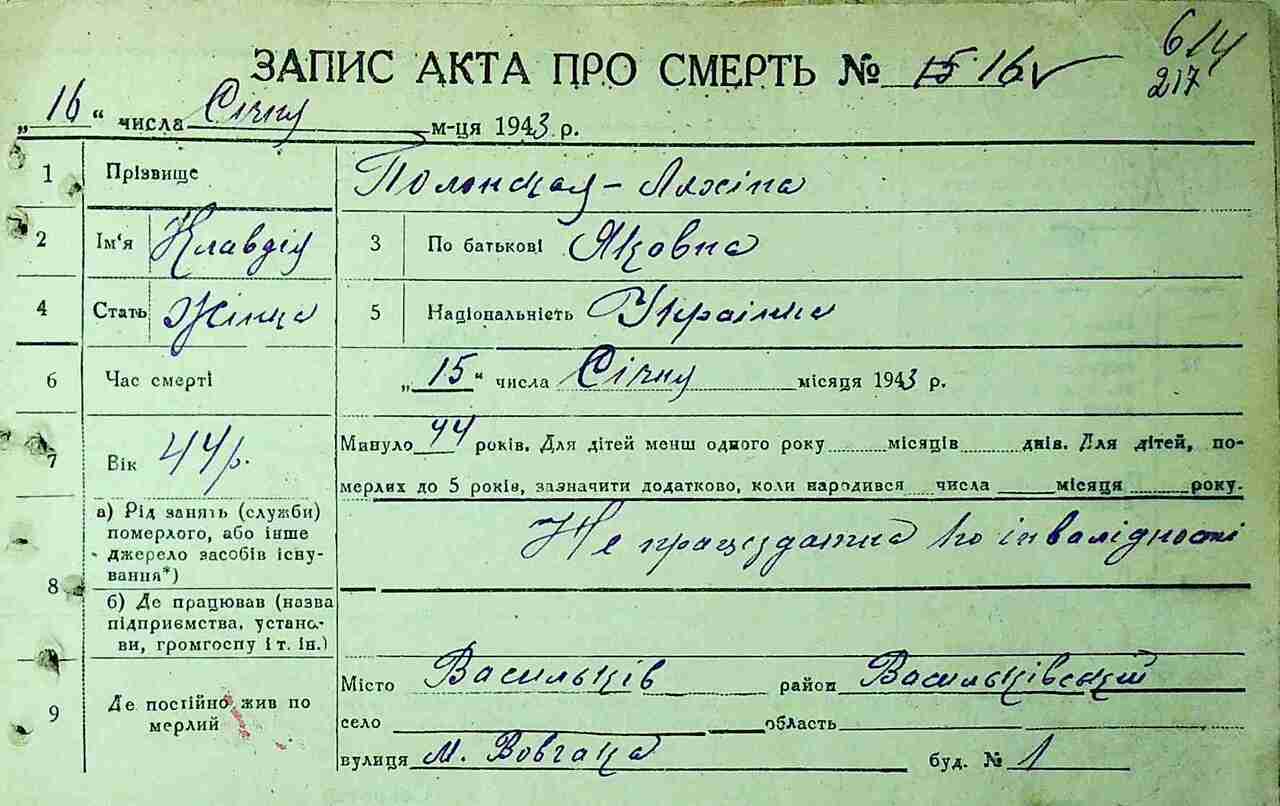 614
217
ЗАПИС АКТА ПРО СМЕРТЬ № 15 16
„16“ числа Січня м-ця 1943 р.
1 Прізвище Полонская - Ляхіна
2 Ім'я Клавдія 3 По батькові Яковна
4 Стать Жінка 5 Національність Українка
6 Час смерті „15“ числа Січня місяця 1943 р.
7 Вік 44 р. Минуло 44 років. Для дітей менш одного року місяців днів. Для дітей, по-
мерлих до 5 років, зазначити додатково, коли народився числа місяця року.
8 а) Рід занять (служби)
померлого, або інше
джерело засобів існу-
вання*)
Не працездатна по інвалідності
б) Де працював (назва
підприємства, устано-
ви, громгоспу і т. ін.)
9 Де постійно жив по
мерлий
Місто Васильків район Васильківський
село область
вулиця М. Вовчака буд. № 1